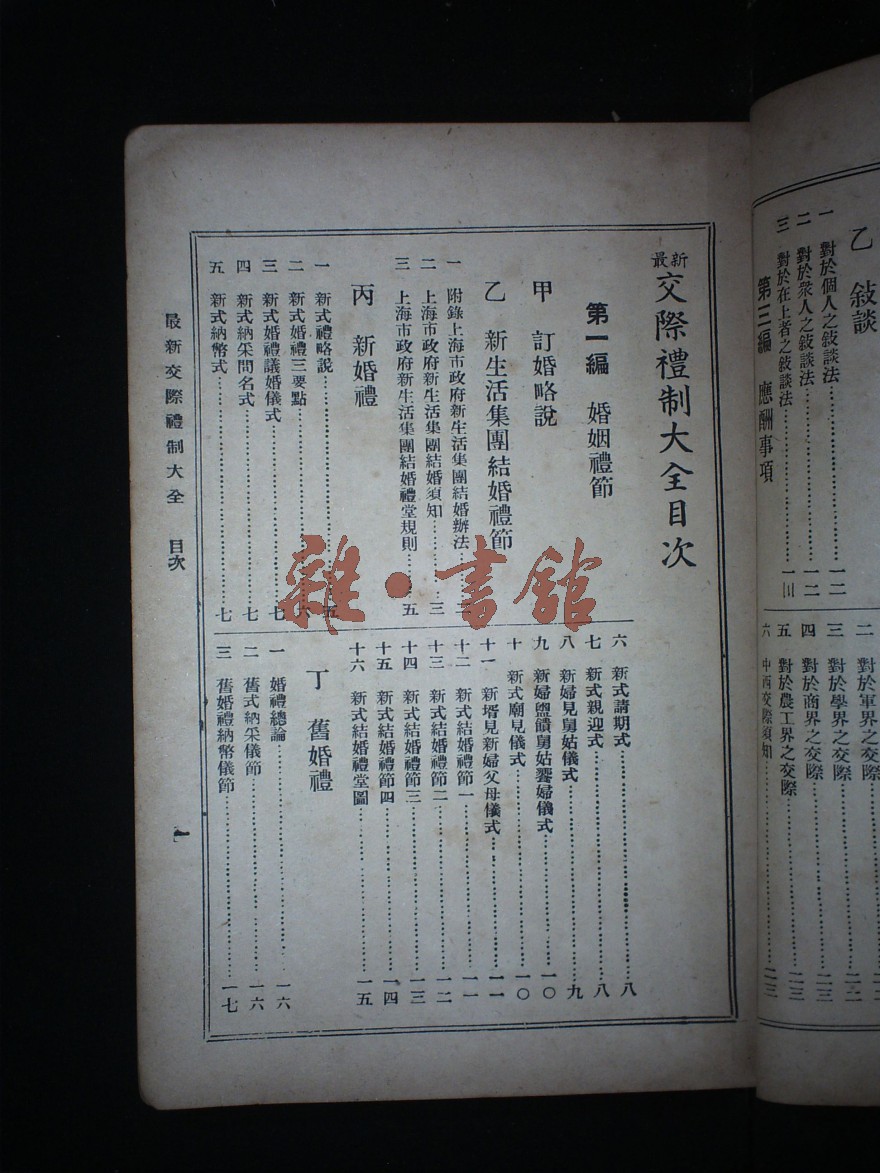 最新交際禮制大全目次
第一編 婚姻禮節
甲 訂婚略說
乙 新生活集團結婚禮節
一 附錄上海市政府新生活集團結婚辦法
二 上海市政府新生活集團結婚須知…三
三 上海市政府新生活集團結婚禮堂規則…五
丙 新婚禮
一 新式禮略說…五
二 新式婚禮三要點…六
三 新式婚禮議婚儀式…七
四 新式納采問名式…七
五 新式納幣式…七
六 新式請期式…八
七 新式親迎式…八
八 新婦見舅姑儀式…九
九 新婦盥饋舅姑饗婦儀式…一〇
十 新式廟見儀式…一〇
十一 新壻見新婦父母儀式…一一
十二 新式結婚禮節一…一一
十三 新式結婚禮節二…一二
十四 新式結婚禮節三…一三
十五 新式結婚禮節四…一四
十六 新式結婚禮堂圖…一五
丁 舊婚禮
一 婚禮總論…一六
二 舊式納采儀節…一六
三 舊婚禮納幣儀節…一七
最新交際禮制大全 目次
一
乙 敍談
一 對於個人之敍談法…一二
二 對於衆人之敍談法…一二
三 對於在上者之敍談法…一三
第三編 應酬事項
二 對於軍界之交際…二二
三 對於學界之交際…二二
四 對於商界之交際…二三
五 對於農工界之交際…二三
六 中西交際須知…二三
雜·書館